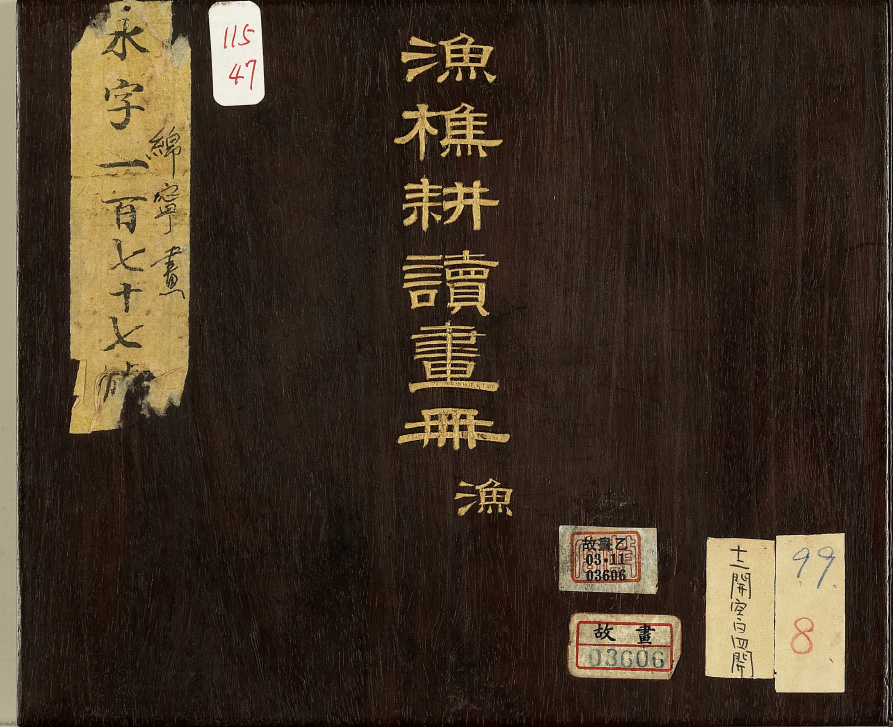 漁樵耕讀畫冊
漁
永字一百七十七
綿寧畫
115
47
故畫乙
03-11
03606
故畫
03606
十二開空白四開
99.
8